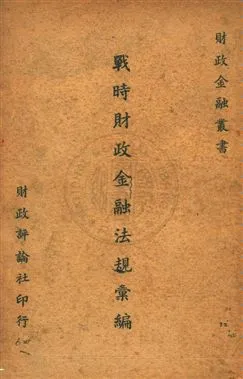 財政金融叢書
戰時財政金融法規彙編
財政評論社印行